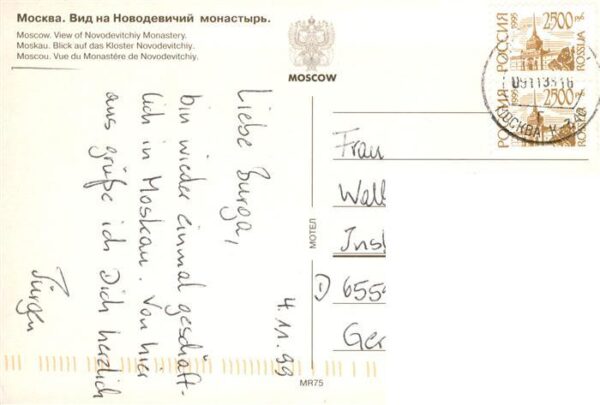 Москва. Вид на Новодевичий монастырь.
Moscow. View of Novodevitchiy Monastery.
Moskau. Blick auf das Kloster Novodevitchiy.
Moscou. Vue du Monastére de Novodevitchiy.
MOSCOW
РОССИЯ 1995 2500 р. ROSSIJA
РОССИЯ 1995 2500 р. ROSSIJA
МОСКВА
4.11.99
Liebe Burga,
bin wieder einmal geschäft-
lich in Moskau. Von hier
aus grüße ich Dich herzlich
Jürgen
МОТЕЛ
Frau
Wall
Inst
D 6559
Ger
MR75